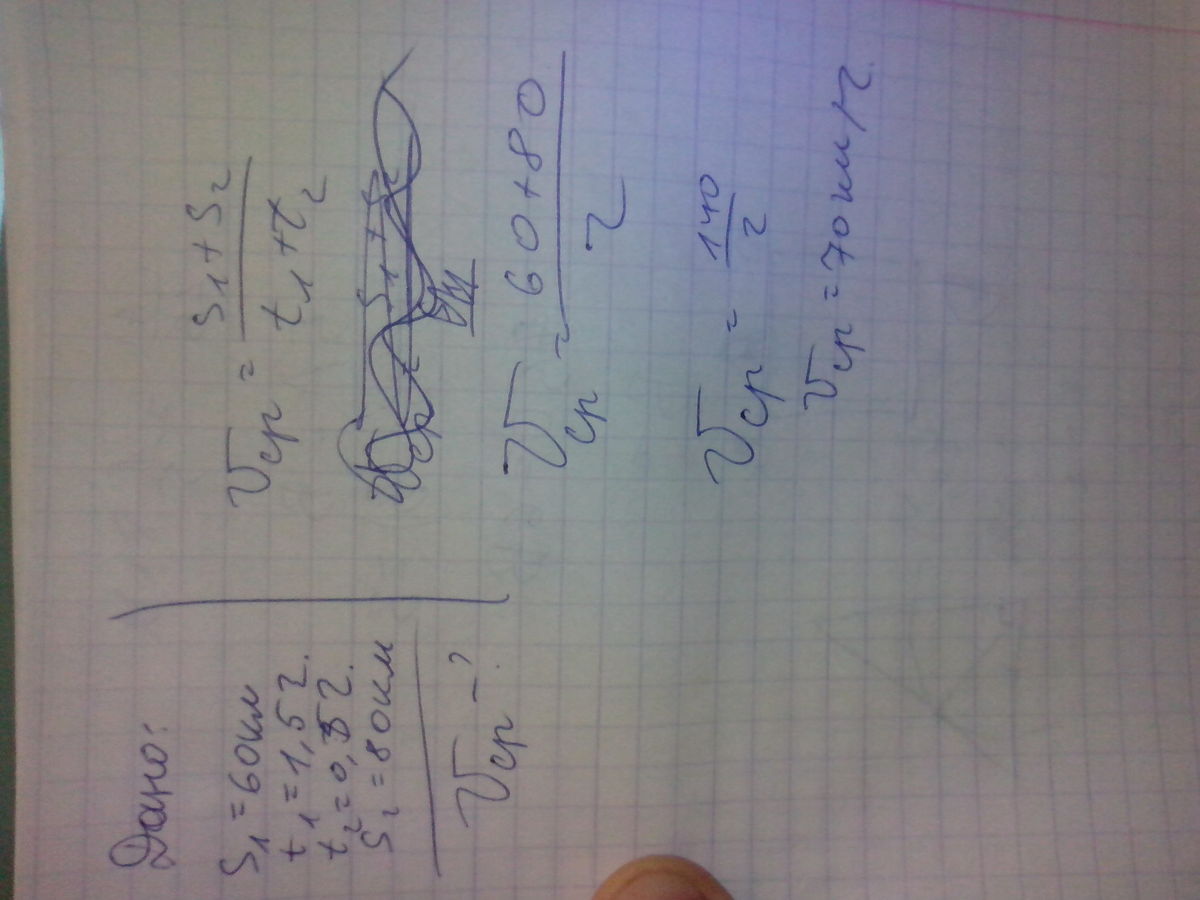 Дано:
S₁ = 60 км
t₁ = 1,5 ч.
t₂ = 0,5 ч.
S₂ = 80 км
Vср – ?
Vср = (S₁ + S₂) / (t₁ + t₂)
Vср = (60 + 80) / 2
Vср = 140 / 2
Vср = 70 км/ч.